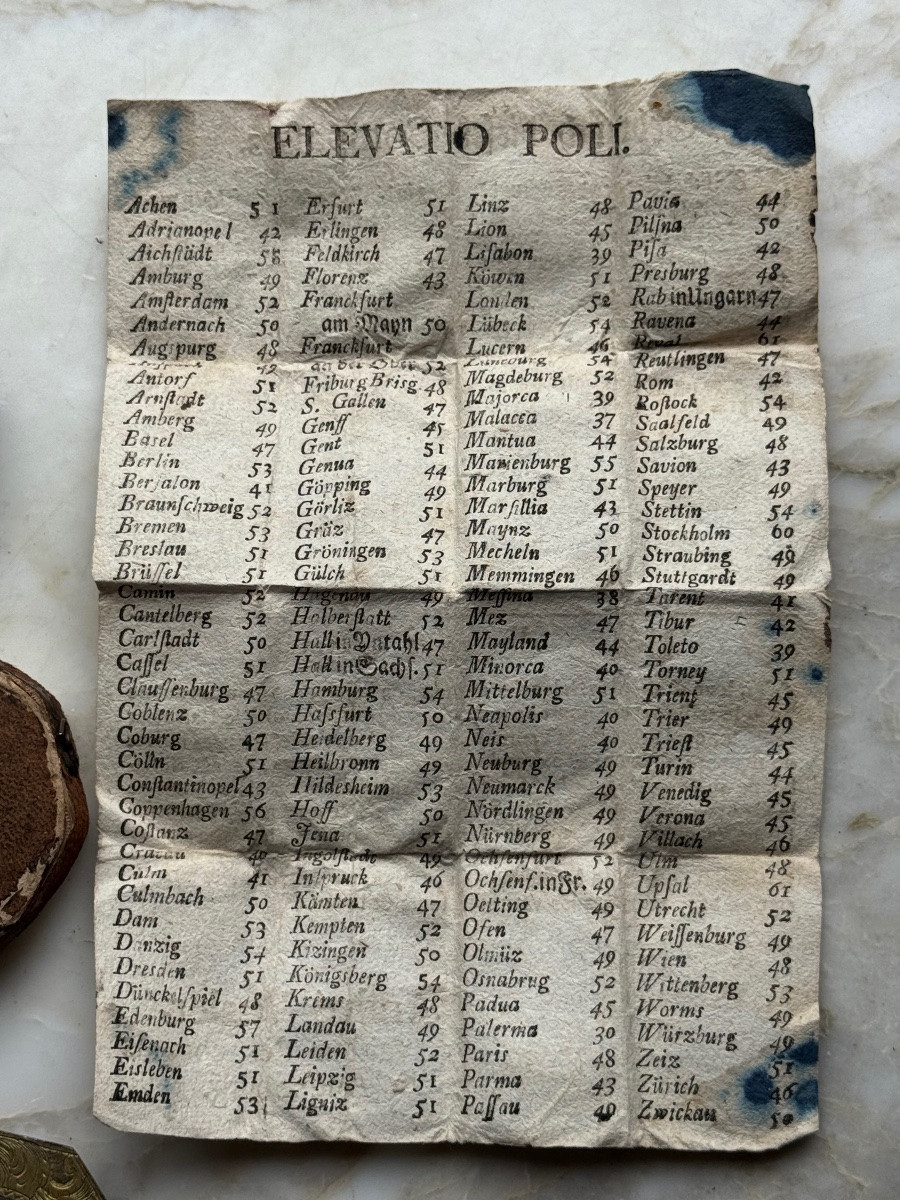 ELEVATIO POLI.
Achen 51
Adrianopel 42
Aichstädt
Amburg 49
Amsterdam 52
Andernach 50
Augspurg 48
49
Antorf 51
Arnstadt 52
Amberg 49
Basel 47
Berlin 53
Bersalon 41
Braunſchweig 52
Bremen 53
Breslau 51
Brüſſel 51
Camin 52
Cantelberg 52
Carlſtadt 50
Caſſel 51
Clauſſenburg 47
Coblenz 50
Coburg 47
Cölln 51
Conſtantinopel 43
Coppenhagen 56
Coſtanz 47
Culm 41
Culmbach 50
Dam 53
Danzig 54
Dresden 51
Dünckelſpiel 48
Edenburg 57
Eiſenach 51
Eisleben 51
Emden 53
Erfurt 51
Erlingen 48
Feldkirch 47
Florenz 43
Franckfurt
am Mayn 50
Franckfurt
an der Oder 52
Friburg Brisg 48
S. Gallen 47
Genff 45
Gent 51
Genua 44
Göpping 49
Görliz 51
Gräz 47
Gröningen 53
Gülch 51
Hagenau 49
Halberſtatt 52
Hall in Yntahl 47
Hall in Sachſ. 51
Hamburg 54
Haſsfurt 50
Heidelberg 49
Heilbronn 49
Hildesheim 53
Hoff 50
Jena 51
Ingolſtadt 49
Inſpruck 46
Kämten 47
Kempten 52
Kizingen 50
Königsberg 54
Krems 48
Landau 49
Leiden 52
Leipzig 51
Ligniz 51
Linz 48
Lion 45
Liſabon 39
Köwen 51
Londen 52
Lübeck 54
Lucern 46
Luneburg 54
Magdeburg 52
Majorca 39
Malacca 37
Mantua 44
Marienburg 55
Marburg 51
Marſillia 43
Maynz 50
Mecheln 51
Memmingen 46
Meſſina 38
Mez 47
Mayland 44
Minorca 40
Mittelburg 51
Neapolis 40
Neis 40
Neuburg 49
Neumarck 49
Nördlingen 49
Nürnberg 49
Ochſenfurt 52
Ochſenf. in Fr. 49
Oetting 49
Ofen 47
Olmüz 49
Osnabrug 52
Padua 45
Palerma 30
Paris 48
Parma 43
Paſſau
Pavia 44
Pilſna 50
Piſa 42
Presburg 48
Rab in Ungarn 47
Ravena 44
Reval 61
Reutlingen 47
Rom 42
Roſtock 54
Saalfeld 49
Salzburg 48
Savion 43
Speyer 49
Stettin 54
Stoekholm 60
Straubing 49
Stuttgardt 49
Tarent 41
Tibur 42
Toleto 39
Torney 51
Trient 45
Trier 49
Trieſt 45
Turin 44
Venedig 45
Verona 45
Villach 46
Ulm 48
Upſal 61
Utrecht 52
Weiſſenburg 49
Wien 48
Wittenberg 53
Worms 49
Würzburg 49
Zeiz 51
Zürich 46
Zwickau 50